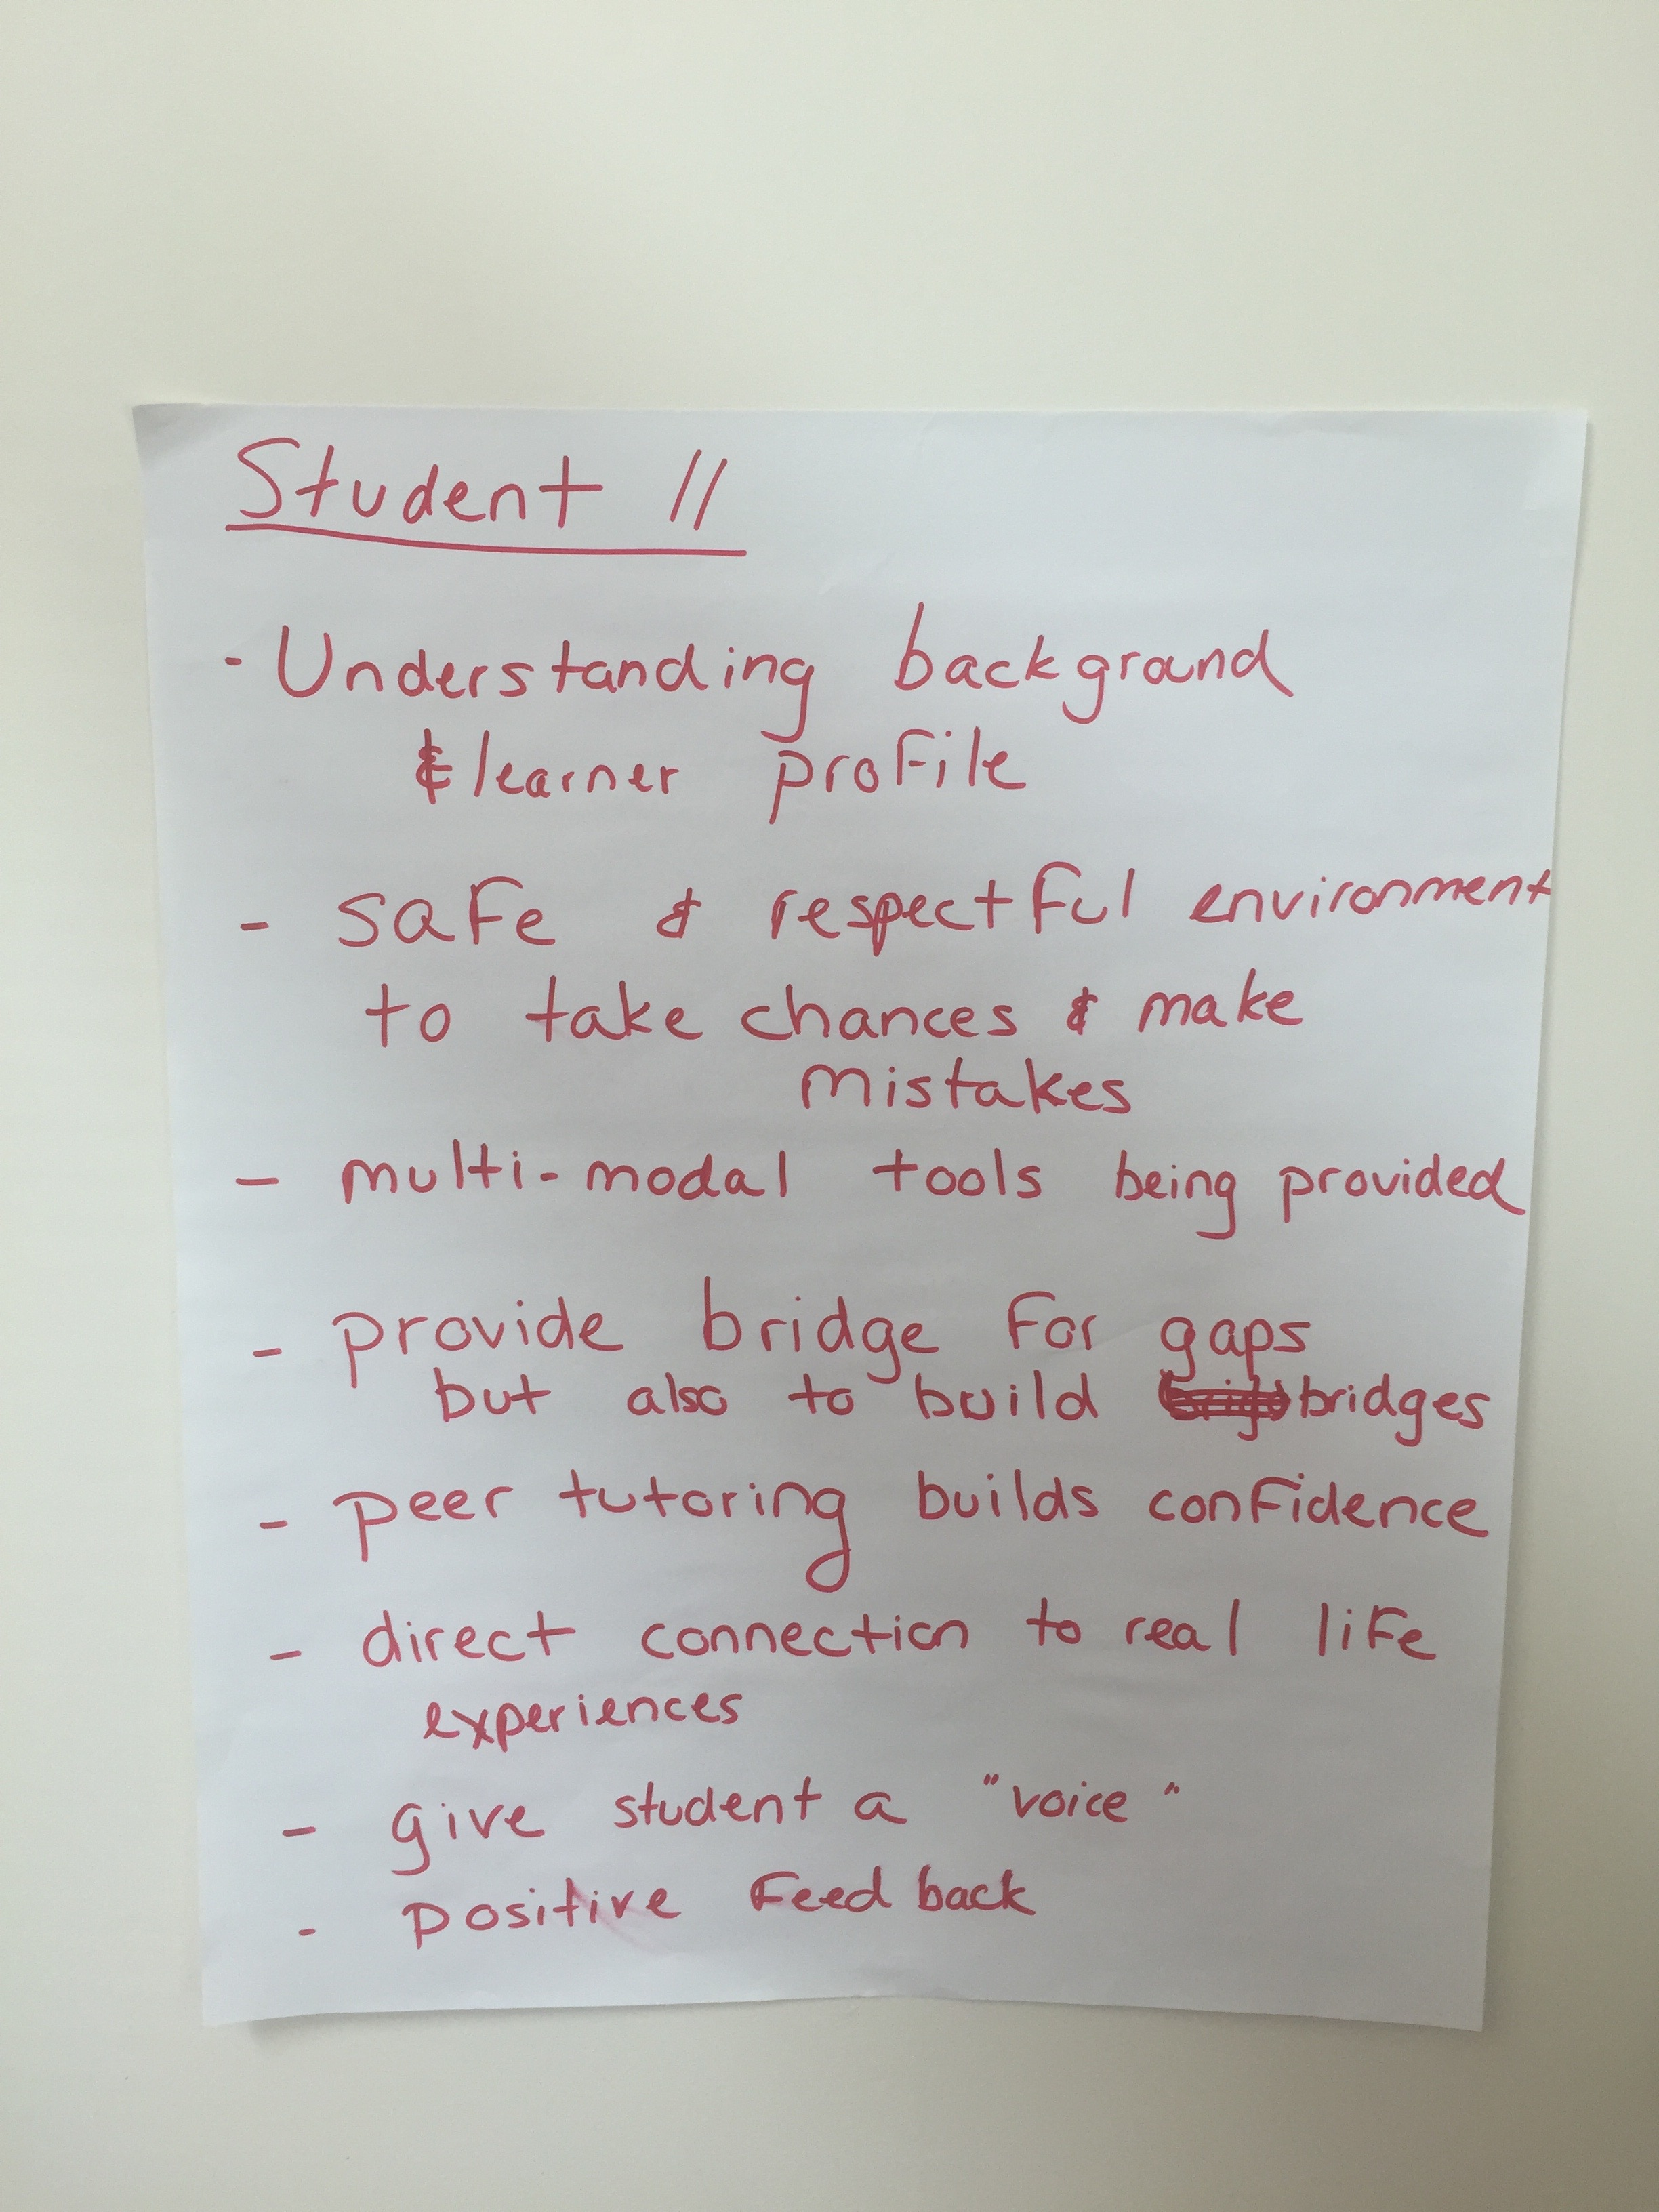 Student 11
- Understanding background
& learner profile
- safe & respectful environment
to take chances & make
mistakes
- multi-modal tools being provided
- provide bridge for gaps
but also to build bridges
- peer tutoring builds confidence
- direct connection to real life
experiences
- give student a "voice"
- positive feedback